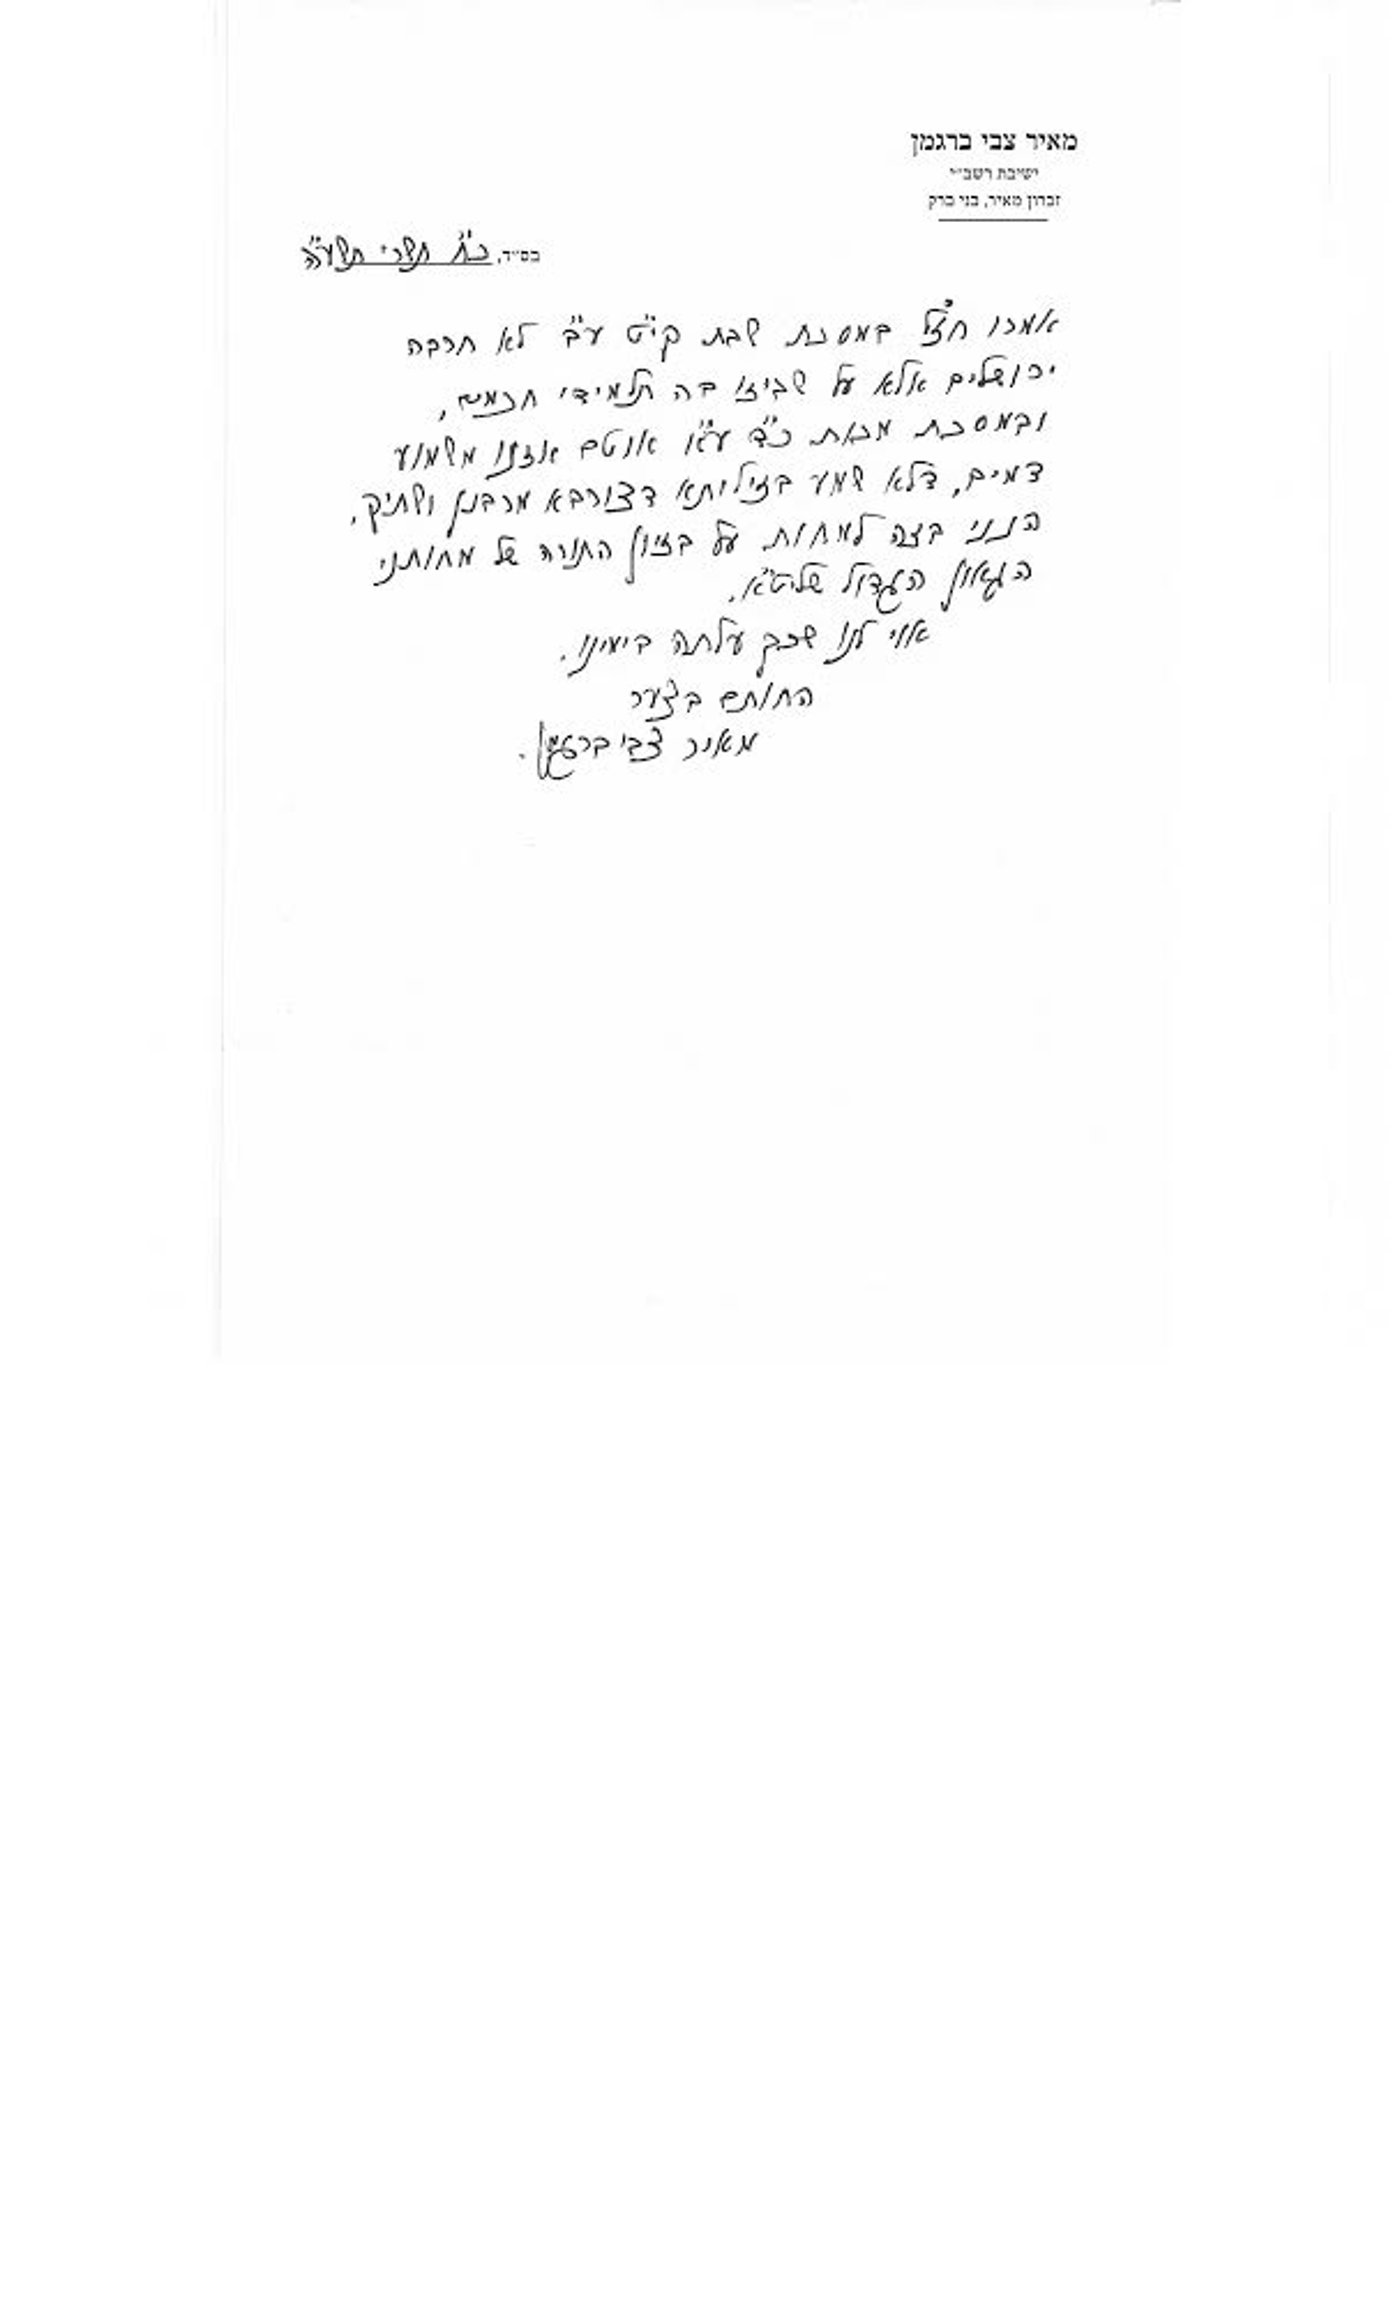 מאיר צבי ברגמן
ישיבת רשב״י
זכרון מאיר, בני ברק
בס״ד, כ״ח תשרי תשע״ה
אמרו חז״ל במסכת שבת קי״ט ע״ב לא חרבה
ירושלים אלא על שביזו בה תלמידי חכמים,
ובמסכת מכות כ״ד ע״א אוטם אזנו משמוע
דמים, דלא שמע בזילותא דצורבא מרבנן ושתיק.
הנני בזה למחות על בזיון התורה של מחותני
הגאון הגדול שליט״א.
אוי לנו שכך עלתה בימינו.
החותם בצער
מאיר צבי ברגמן.